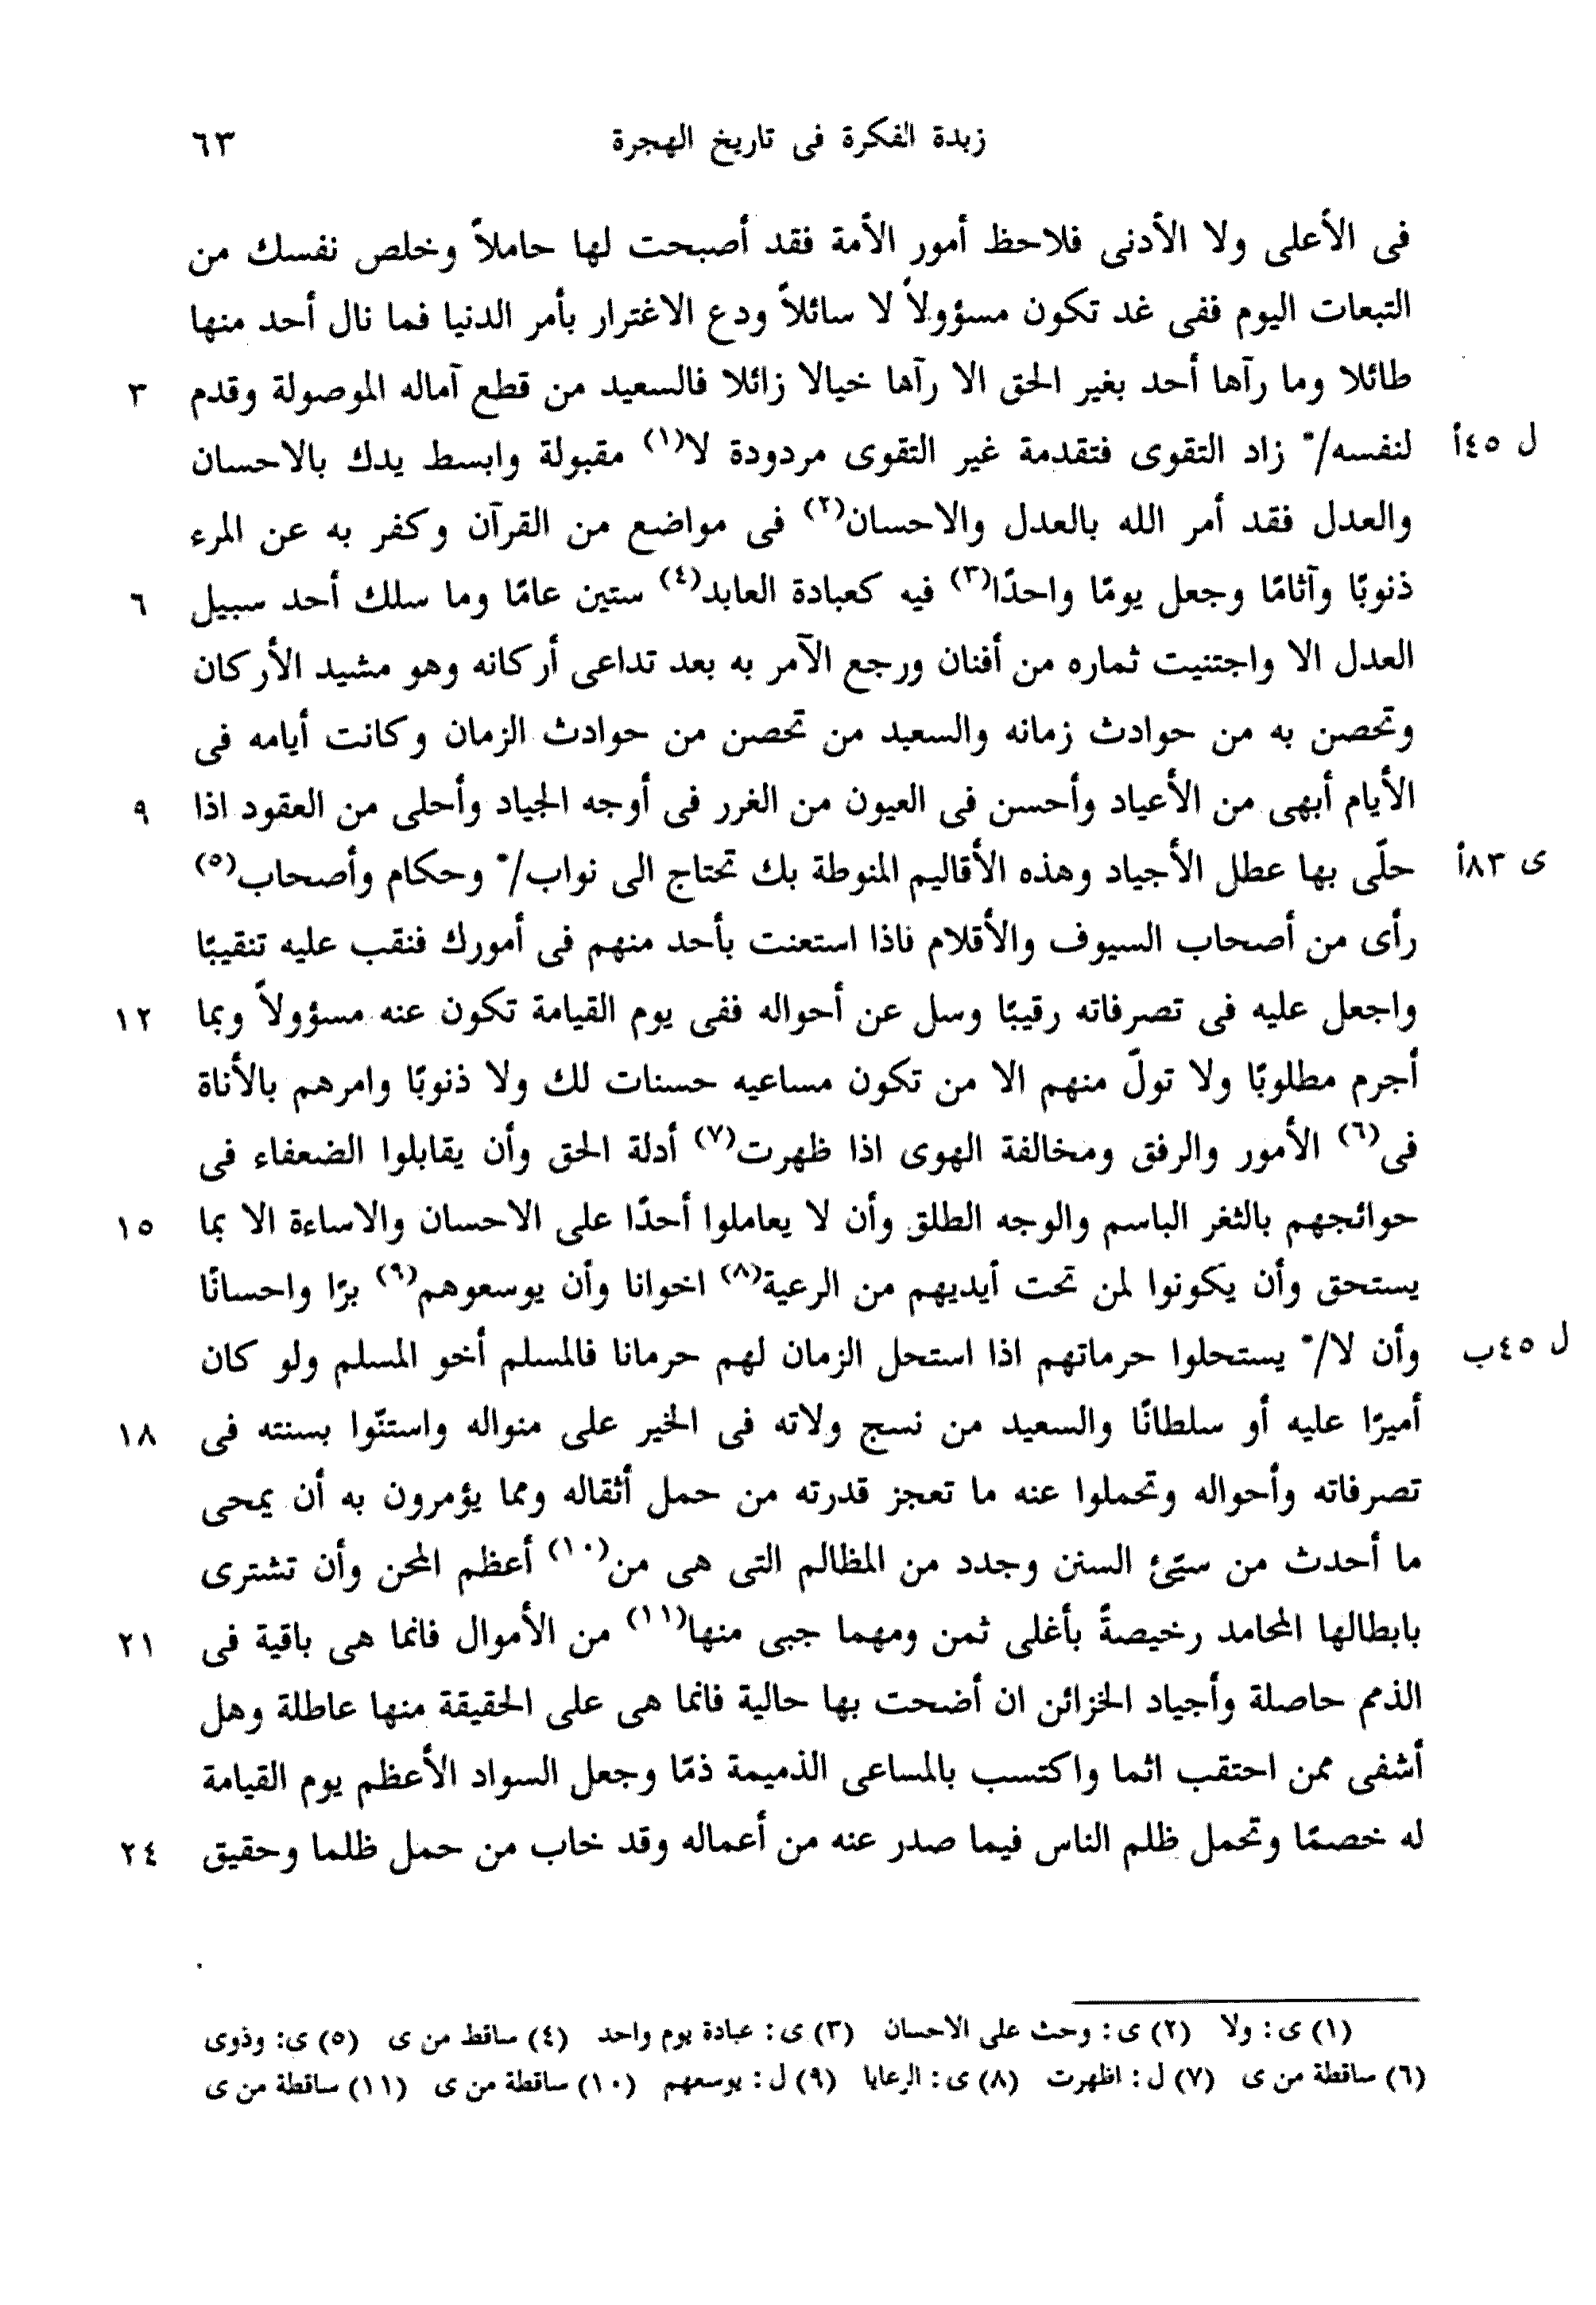 زبدة الفكرة فى تاريخ الهجرة ٦٣
فى الأعلى ولا الأدنى فلاحظ أمور الأمة فقد أصبحت لها حاملاً وخلص نفسك من
التبعات اليوم ففى غد تكون مسؤولاً لا سائلاً ودع الاغترار بأمر الدنيا فما نال أحد منها
طائلا وما رآها أحد بغير الحق الا رآها خيالا زائلا فالسعيد من قطع آماله الموصولة وقدم ٣
ل ٤٥أ لنفسه/* زاد التقوى فتقدمة غير التقوى مردودة لا(١) مقبولة وابسط يدك بالاحسان
والعدل فقد أمر الله بالعدل والاحسان(٢) فى مواضع من القرآن وكفر به عن المرء
ذنوبًا وآثامًا وجعل يومًا واحدًا(٣) فيه كعبادة العابد(٤) ستين عامًا وما سلك أحد سبيل ٦
العدل الا واجتنيت ثماره من أفنان ورجع الآمر به بعد تداعى أركانه وهو مشيد الأركان
وتحصن به من حوادث زمانه والسعيد من تحصن من حوادث الزمان وكانت أيامه فى
الأيام أبهى من الأعياد وأحسن فى العيون من الغرر فى أوجه الجياد وأحلى من العقود اذا ٩
ى ٨٣أ حلّى بها عطل الأجياد وهذه الأقاليم المنوطة بك تحتاج الى نواب/* وحكام وأصحاب(٥)
رأى من أصحاب السيوف والأقلام فاذا استعنت بأحد منهم فى أمورك فنقب عليه تنقيبًا
واجعل عليه فى تصرفاته رقيبًا وسل عن أحواله ففى يوم القيامة تكون عنه مسؤولاً وبما ١٢
أجرم مطلوبًا ولا تولّ منهم الا من تكون مساعيه حسنات لك ولا ذنوبًا وامرهم بالأناة
فى(٦) الأمور والرفق ومخالفة الهوى اذا ظهرت(٧) أدلة الحق وأن يقابلوا الضعفاء فى
حوائجهم بالثغر الباسم والوجه الطلق وأن لا يعاملوا أحدًا على الاحسان والاساءة الا بما ١٥
يستحق وأن يكونوا لمن تحت أيديهم من الرعية(٨) اخوانا وأن يوسعوهم(٩) برًا واحسانًا
ل ٤٥ب وأن لا/* يستحلوا حرماتهم اذا استحل الزمان لهم حرمانا فالمسلم أخو المسلم ولو كان
أميرًا عليه أو سلطانًا والسعيد من نسج ولاته فى الخير على منواله واستنّوا بسنته فى ١٨
تصرفاته وأحواله وتحملوا عنه ما تعجز قدرته من حمل أثقاله ومما يؤمرون به أن يمحى
ما أحدث من سيّئ السنن وجدد من المظالم التى هى من(١٠) أعظم المحن وأن تشترى
بابطالها المحامد رخيصةً بأغلى ثمن ومهما جبى منها(١١) من الأموال فانما هى باقية فى ٢١
الذمم حاصلة وأجياد الخزائن ان أضحت بها حالية فانما هى على الحقيقة منها عاطلة وهل
أشفى ممن احتقب اثما واكتسب بالمساعى الذميمة ذمًا وجعل السواد الأعظم يوم القيامة
له خصمًا وتحمل ظلم الناس فيما صدر عنه من أعماله وقد خاب من حمل ظلما وحقيق ٢٤
(١) ى: ولا (٢) ى: وحث على الاحسان (٣) ى: عبادة يوم واحد (٤) ساقط من ى (٥) ى: وذوى
(٦) ساقطة من ى (٧) ل: اظهرت (٨) ى: الرعايا (٩) ل: يوسعهم (١٠) ساقطة من ى (١١) ساقطة من ى